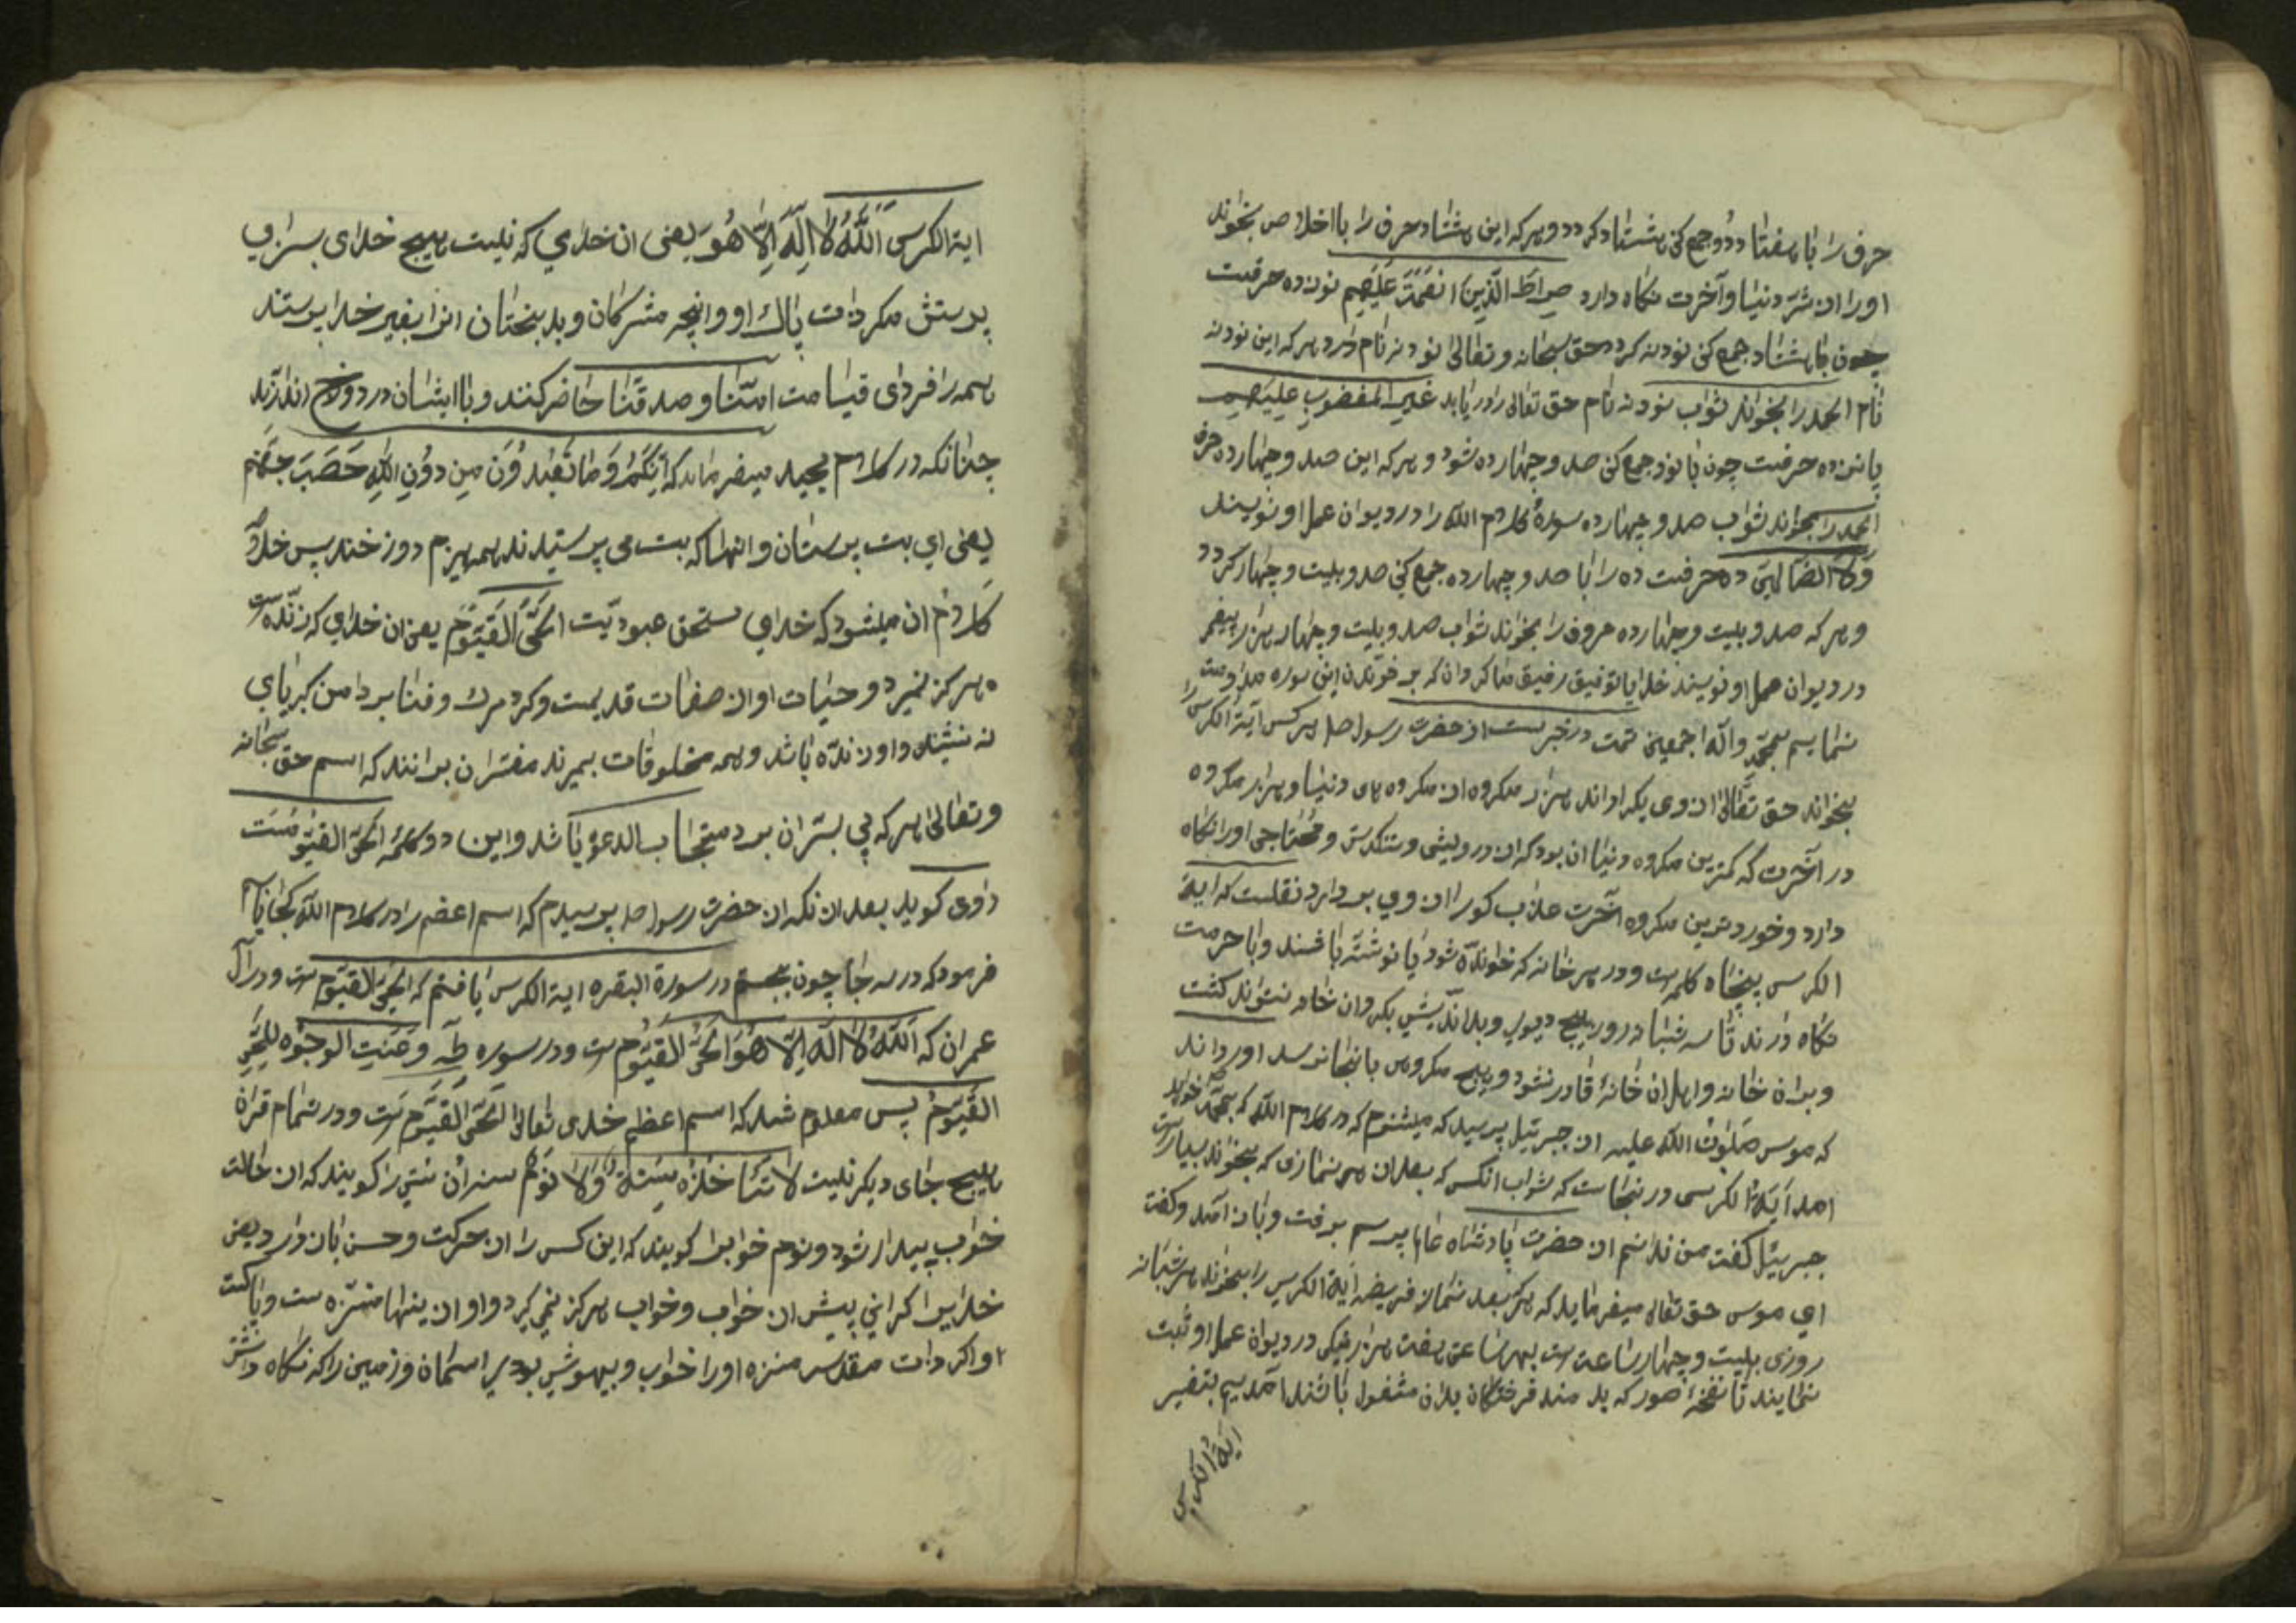 حرف را با هفتاد و دو جمع کنی هشتاد کردد و هر که این هشتاد حرف را با اخلاص بخواند
او را از شر دنیا و آخرت نکاه دارد صِرَاطَ الَّذِینَ انعَمتَ عَلَیهِم نوزده حرفست
چون با هشتاد جمع کنی نودنه کردد حق سبحانه و تعالی نودنه نام دارد هر که این نودنه
نام الحمد را بخواند ثواب نودنه نام حق تعالی را دریابد غیر المغضوبِ علیهِم
پانزده حرفست چون با نود جمع کنی صد و چهارده شود و هر که این صد و چهارده حرف
الحمد را بخواند ثواب صد و چهارده سورهٔ کلام الله را در دیوان عمل او نویسند
وَلا الضالین ده حرفست ده را با صد و چهارده جمع کنی صد و بیست و چهار کردد
و هر که صد و بیست و چهارده حروف را بخواند ثواب صد و بیست و چهار هزار پیغمبر
در دیوان عمل او نویسند خدایا توفیق رفیق ما کردان که بر خواندن این سوره مداومت
نماییم بمحمد و آله اجمعین تمت در خبرست از حضرت رسول صل هر کس آیة الکرسی را
بخواند حق تعالی از وی بکرداند هزار مکروه از مکروه های دنیا و هزار مکروه
در آخرت که کمترین مکروه دنیا ان بود که از درویشی و تنکدستی و محتاجی او را نکاه
دارد و خوردترین مکروه آخرت عذاب کور را از وی بردارد نقلست که ایة
الکرسی پنجاه کلمه است و در هر خانه که خوانده شود یا نوشته باشند و با حرمت
نکاه دارند تا سه شبا در ور هیچ دیوی و بداندیشی بکردان خانه نتواند کشت
و بدان خانه و اهل ان خانهٔ قادر نشود و هیچ مکروهی بانجا نرسد آورداند
که موسی صلوتُ الله علیه از جبرئیل پرسید که میشنوم که در کلام الله که بمحمد خواهد
امد آیَةُ الکرسی در نجاست که ثواب انکس که بعد از هر نمازی که بخواند بسیارست
جبریٔیل کفت من ندانم از حضرت پادشاه عالم پرسم برفت و باز آمد و کفت
ای موسی حق تعالی میفرماید که هرکه بعد نماز فریضه ایة الکرسی را بخواند هر شبانه
روزی بیست و چهار ساعت است بهر ساعتی هفت هزار نیکی در دیوان عمل او ثبت
نمایند تا نفخهٔ صور که بدمند فرشتکان بدان مشغول باشند آمدیم بتفسیر
ایةُ الکرسی
ایة الکرسی اَللَّهُ لا اِلَهَ اِلَّا هُوَ یعنی ان خدای که نیست هیچ خدای بسزای
پرستش مکر ذات پاک او و انچه مشرکان و بدبختان انرا بغیر خدا پرستند
همه را فردای قیامت امنا و صدقنا حاضر کنند و با ایشان در دوزخ اندازند
چنانکه در کلام مجید میفرماید که اِنَّکُمْ وَمَا تَعْبُدُونَ مِن دُونِ اللَّهِ حَصَبَ جهنم
یعنی ای بت پرستان و انها که بت می پرستیدند همه هیزم دوزخند پس خلاصهٔ
کلام ان میشود که خدای مستحق عبودیت الحَیُّ القَیُّومُ یعنی ان خدای که زنده است
هرکز نمیرد و حیات او از صفات قدیمست و کرد مرک و فنا بر دامن کبریای
نه نشیند و او زنده باشد و همه مخلوقات بمیرند مفسران بر انند که اسم حق سبحانه
و تعالی هر که پی بسر ان برد مستجاب الدعوٰة باشد و این دو کلمهٔ الحی القیومست
راوی کوید بعد ان نکه ان حضرت رسول صل پرسیدم که اسم اعضم را در کلام الله کجا یابم
فرمود که در سه جا چون بجستم در سورة البقره ایة الکرسی یافتم که الحَیُّ القیوم ست و در آل
عمران که اَللَّهُ لا اِلَهَ اِلَّا هُوَ الحَیُّ القَیُّوم ست و در سوره طه وعَنَتِ الوجوُه لِلحَیِّ
القَیُّومُ پس معلوم شد که اسم اعظم خدای تعالی اَلحَیُّ القَیُّوم ست و در تمام قران
هیچ جای دیکر نیست لا تَأخُذُهُ سِنَةٌ وَلا نَومٌ سنه ان سستی را کویند که ان حالت
خواب پیدا شود و نوم خوابرا کویند که این کس را از حرکت و حس بازدارد یعنی
خدایرا کرانی پیش از خواب و خواب هرکز نمی کیرد و او از ینها منزه ست و پاکست
و اکر ذات مقدس منزه او را خواب و بیهوشی بودی اسمان و زمین را که نکاه داشتی